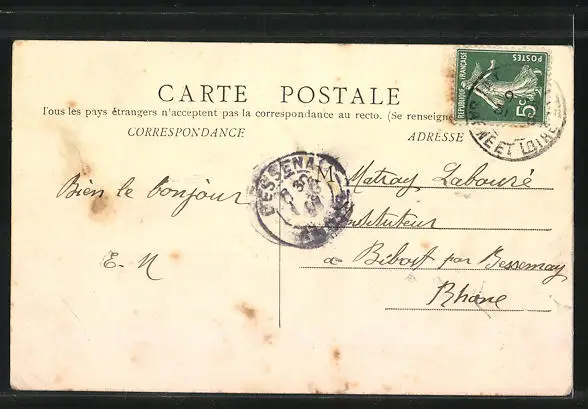 CARTE POSTALE
Tous les pays étrangers n'acceptent pas la correspondance au recto. (Se renseigne
CORRESPONDANCE
ADRESSE
RÉPUBLIQUE FRANÇAISE
POSTES
5c
NE ET LOIRE
BESSENAY
Bien le bonjour
E. N
M Matray Labouré
Instituteur
à Bibost par Bessenay
Rhône